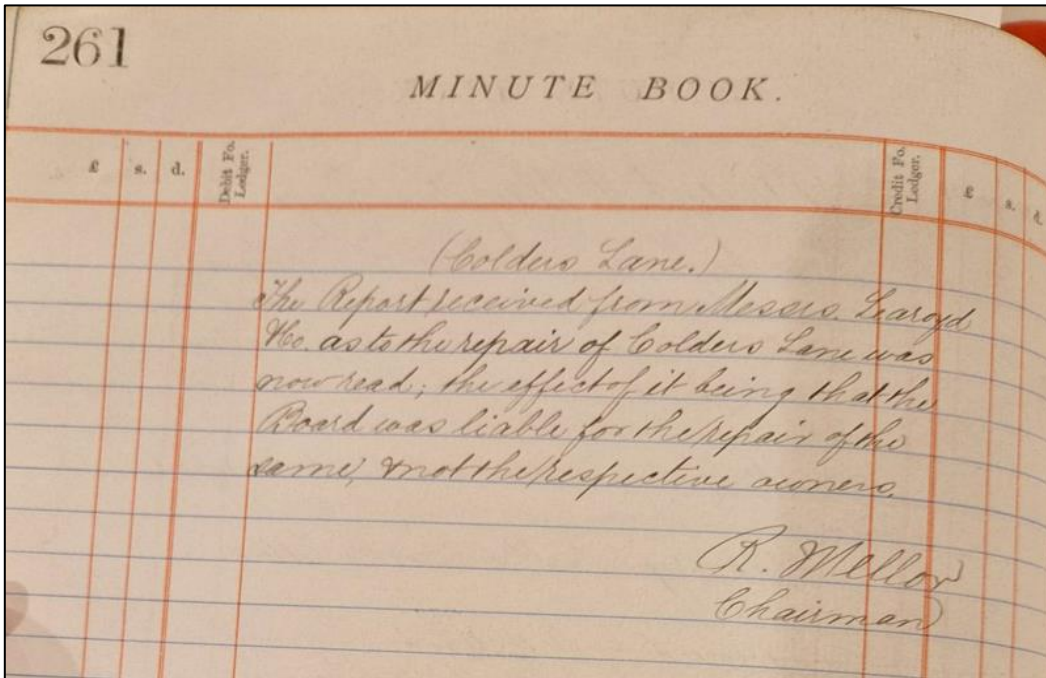 261
MINUTE BOOK.
£ s. d. Debit Fo. Ledger. Credit Fo. Ledger. £ s. d.
(Colders Lane.)
The Report received from Messrs. Learoyd
& Co. as to the repair of Colders Lane was
now read; the effect of it being that the
Board was liable for the repair of the
same, & not the respective owners.
R. Mellor
Chairman